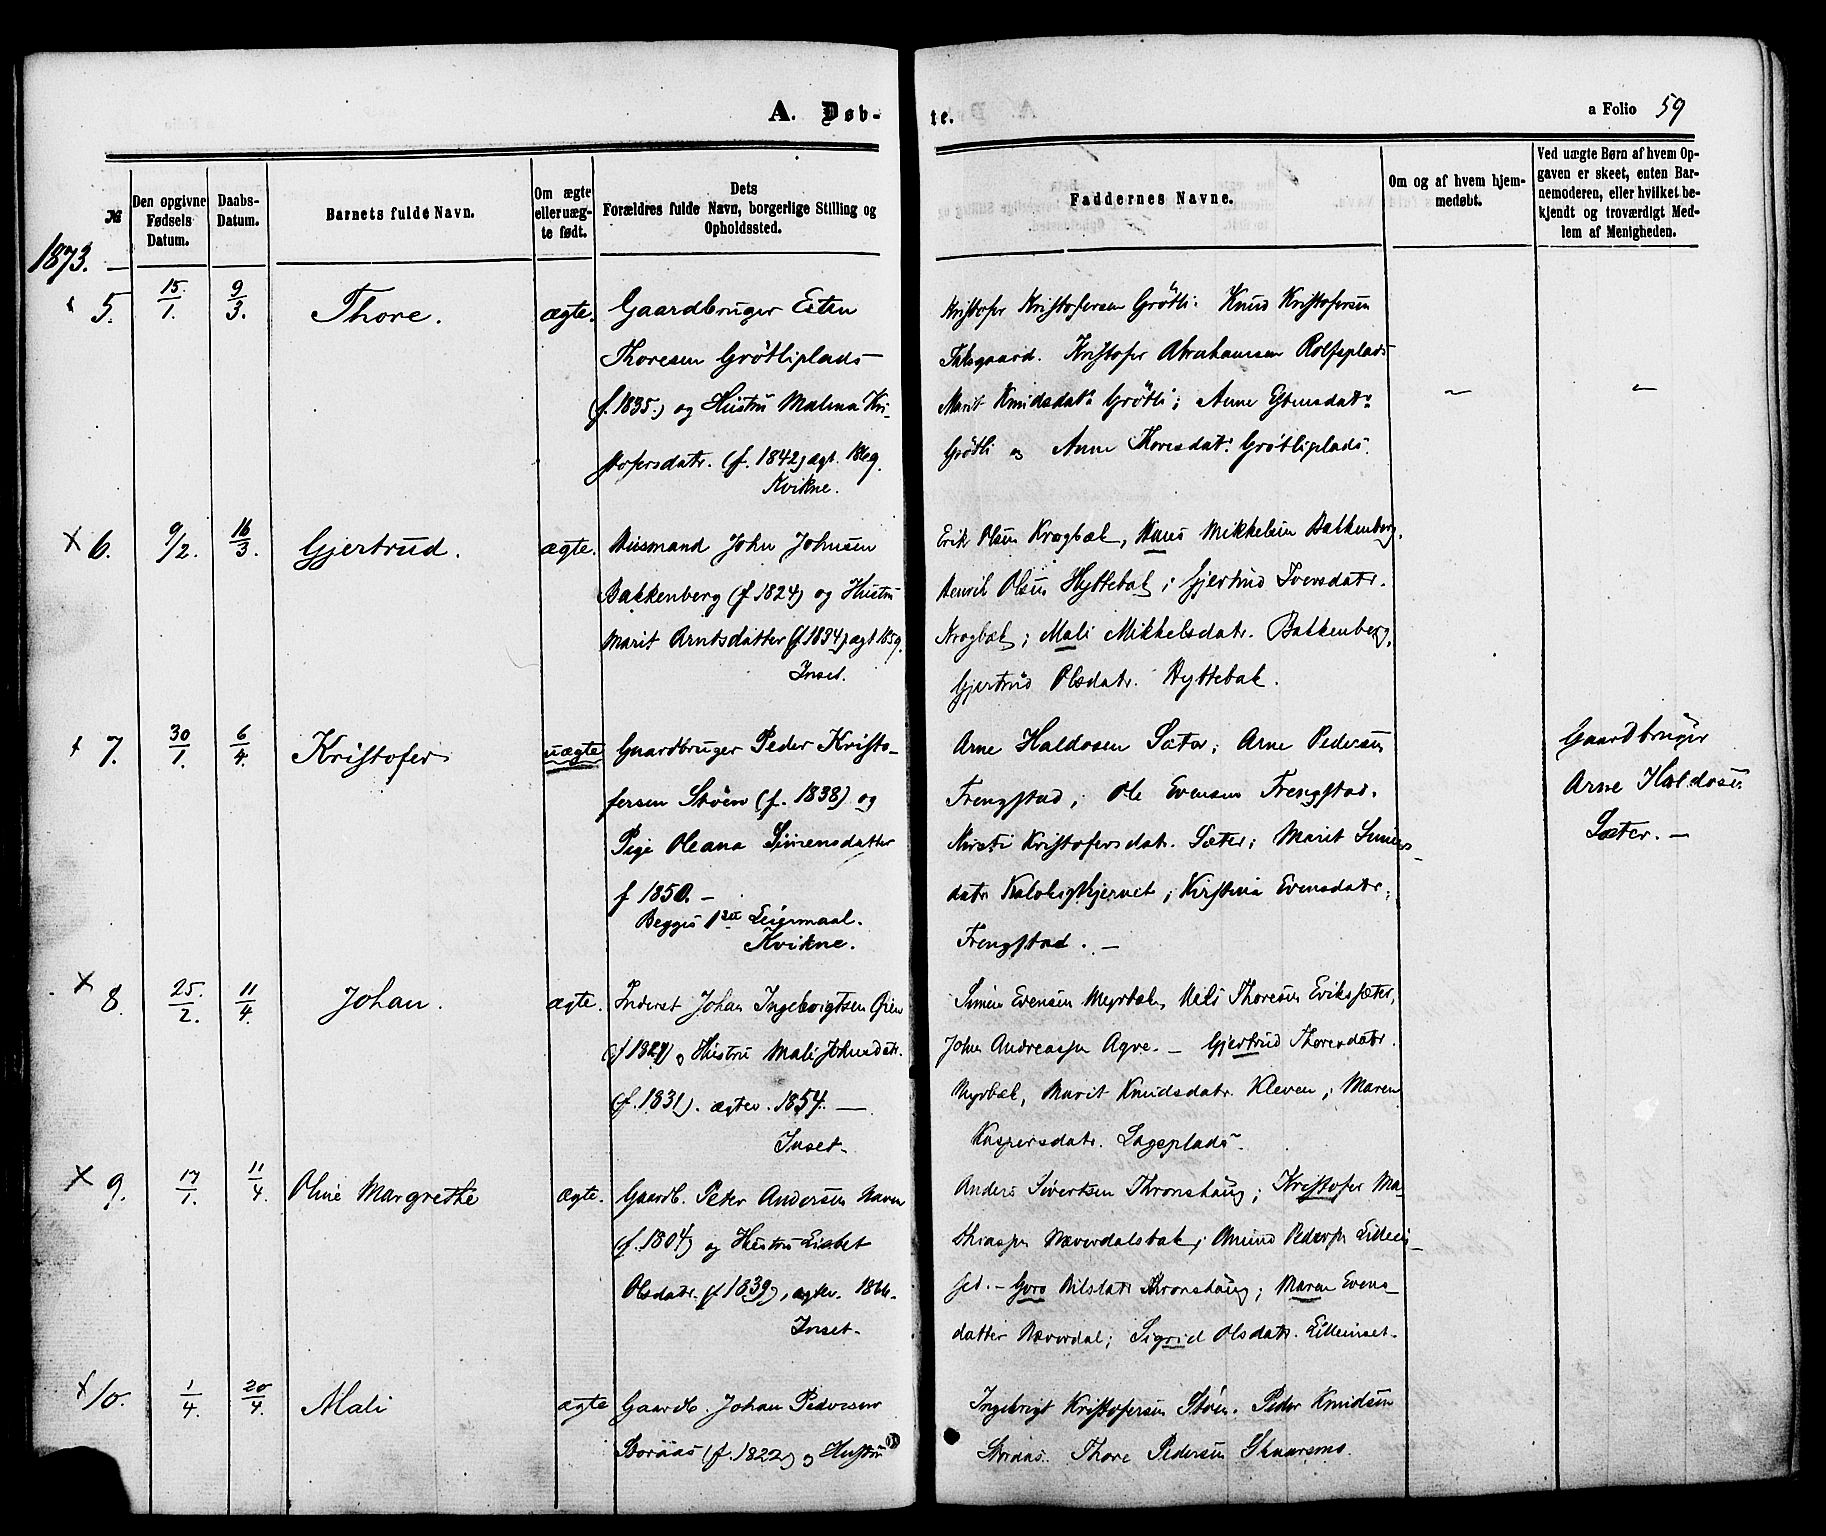 A. Døb-
te.
a Folio 59
№
Den opgivne Fødsels Datum.
Daabs-Datum.
Barnets fulde Navn.
Om ægte eller uæg-te født.
Dets Forældres fulde Navn, borgerlige Stilling og Opholdssted.
Faddernes Navne.
Om og af hvem hjem-medøbt.
Ved uægte Børn af hvem Op-gaven er skeet, enten Bar-nemoderen, eller hvilket be-kjendt og troværdigt Med-lem af Menigheden.
1873.
5.
15/1.
9/3.
Thore.
ægte.
Gaardbruger Esten
Thoresen Grøtliplads
(f. 1835.) og Hustru Malena Kri-
stofersdatr. (f. 1842) agt. 1869.
Kvikne.
Kristofer Kristofersen Grøtli. Knud Kristofersen
Kristofer Abrahamsen Rolfsplads
Marit Knudsdatr Grøtli; Anne Estensdatr
Grøtli og Anne Thoresdatr. Grøtliplads.
x 6.
9/2.
16/3.
Gjertrud.
ægte.
Husmand John Johnsen
Bakkenberg (f. 1824) og Hustru
Marit Arntsdatter (f. 1834) agt 1859.
Inset.
Erik Olsen Krogbæk, Hans Mikkelsen Bakkenberg.
Henrik Olsen Hyttebak; Gjertrud Iversdatr.
Krogbæk; Mali Mikkelsdatr. Bakkenberg,
Gjertrud Olsdatr. Hyttebak.
x 7.
30/1.
6/4.
Kristofer
uægte
Gaardbruger Peder Kristo-
fersen Støen (f. 1838) og
Pige Oleana Simensdatter
f 1850. -
Begges 1ste Leiermaal.
Kvikne.
Arne Haldosen Sæter; Arne Pedersen
Frengstad; Ole Evensen Frengstad.
Kirsti Kristofersdatr. Sæter; Marit Simens-
datr; Kirstina Evensdatr.
Frengstad. -
Gaardbruger
Arne Haldosen
Sæter. -
x 8.
25./2.
11/4.
Johan.
ægte.
Inderst Johan Ingebrigtsen Øien
og Hustru Mali Johnsdatr.
(f. 1831). agtev. 1854. -
Inset.
Simen Evensen Myrbæk, Nils Thoresen Eriksæter,
John Andreasen Agre. - Gjertrud Thoresdatr.
Myrbæk, Marit Knudsdatr. Kleven; Maren
Kaspersdatr.
x 9.
17/1.
11/4.
Oline Margrethe
ægte.
Gaardb. Peter Andersen
(f. 1804) og Hustru Lisbet
Olsdatr. (f 1839), agtev. 1866.
Inset.
Anders Sivertsen Thronshaug; Kristofer Ma-
thiasen Næverdalsbak; Amund Pedersen Lillein-
set. - Goro Nilsdatr Thronshaug; Maren Evens-
datter Næverdal; Sigrid Olsdatr. Lilleinset.
x 10.
1/4.
20/4.
Mali
ægte
Gaardb. Johan Pedersen
(f. 1822) og Hustru
Ingebrigt Kristofersen Støen. Peder Knudsen
Thore Pedersen